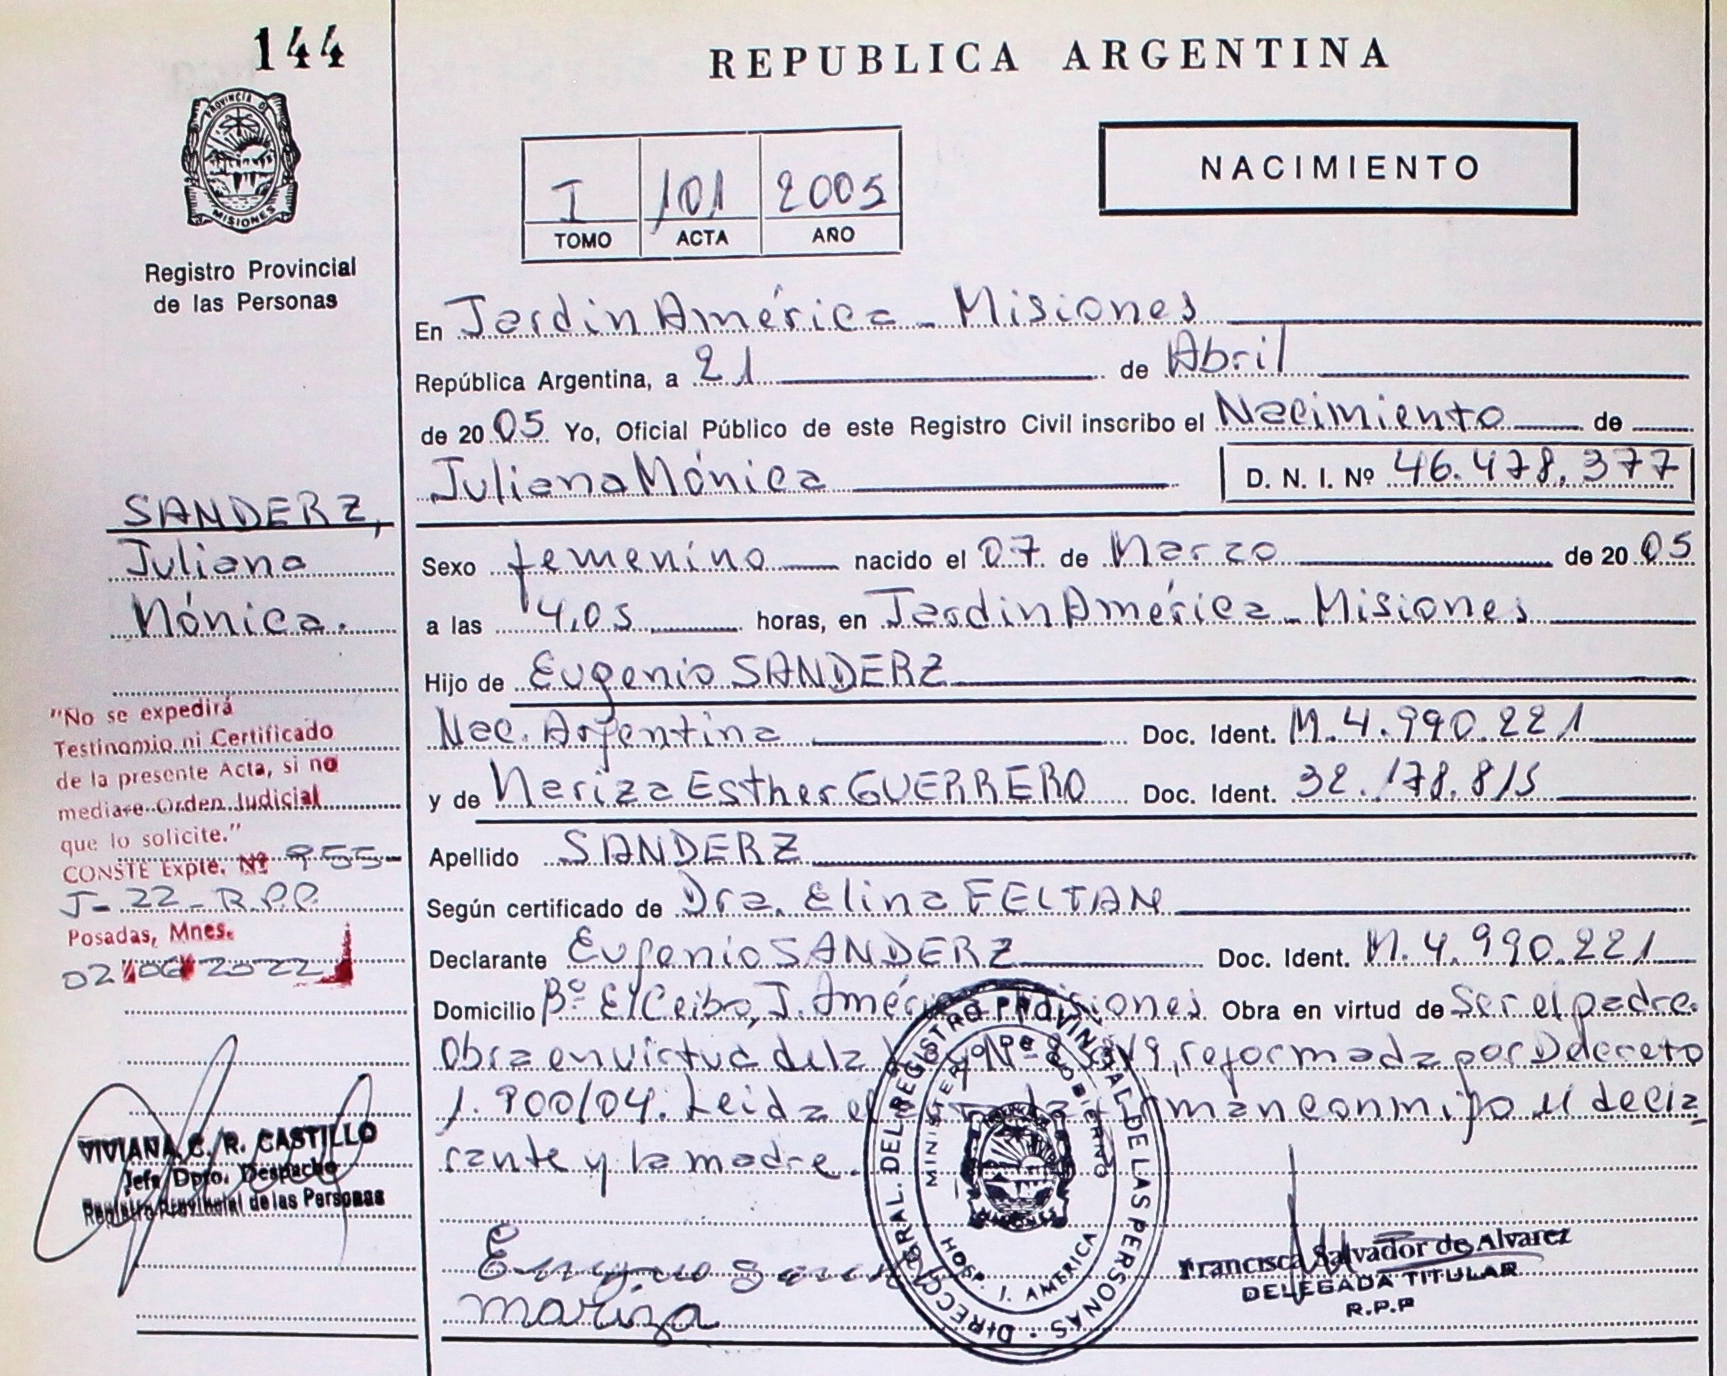 144
PROVINCIA D
MISIONES
Registro Provincial
de las Personas
SANDERZ,
Juliana
Mónica.
"No se expedirá
Testinomio ni Certificado
de la presente Acta, si no
mediare Orden Judicial
que lo solicite."
CONSTE Expte. Nº 955-
J-22-R.P.P.
Posadas, Mnes.
02/06/2022
VIVIANA C. R. CASTILLO
Jefa Dpto. Despacho
Registro Provincial de las Personas
REPUBLICA ARGENTINA
I 101 2005
TOMO ACTA AÑO
NACIMIENTO
En Jardin América - Misiones
República Argentina, a 21 de Abril
de 2005 Yo, Oficial Público de este Registro Civil inscribo el Nacimiento de
Juliana Mónica D. N. I. Nº 46.478.377
Sexo femenino nacido el 07 de Marzo de 2005
a las 4,05 horas, en Jardin América - Misiones
Hijo de Eugenio SANDERZ
Nac. Argentina Doc. Ident. M.4.990.221
y de Mariza Esther GUERRERO Doc. Ident. 32.178.815
Apellido SANDERZ
Según certificado de Dra. Elina FELTAN
Declarante Eugenio SANDERZ Doc. Ident. M.4.990.221
Domicilio Bº El Ceibo, J. América Misiones Obra en virtud de Ser el padre.
Obra en virtud de la Ley Nº 19, reformada por Decreto
1.900/04. Leida el firman conmigo el decla
rante y la madre.
DIRECC. GRAL. DEL REGISTRO PROVINCIAL DE LAS PERSONAS
MINISTERIO GOBIERNO
HOSP. J. AMERICA
mariza
Francisca Salvador de Alvarez
DELEGADA TITULAR
R.P.P